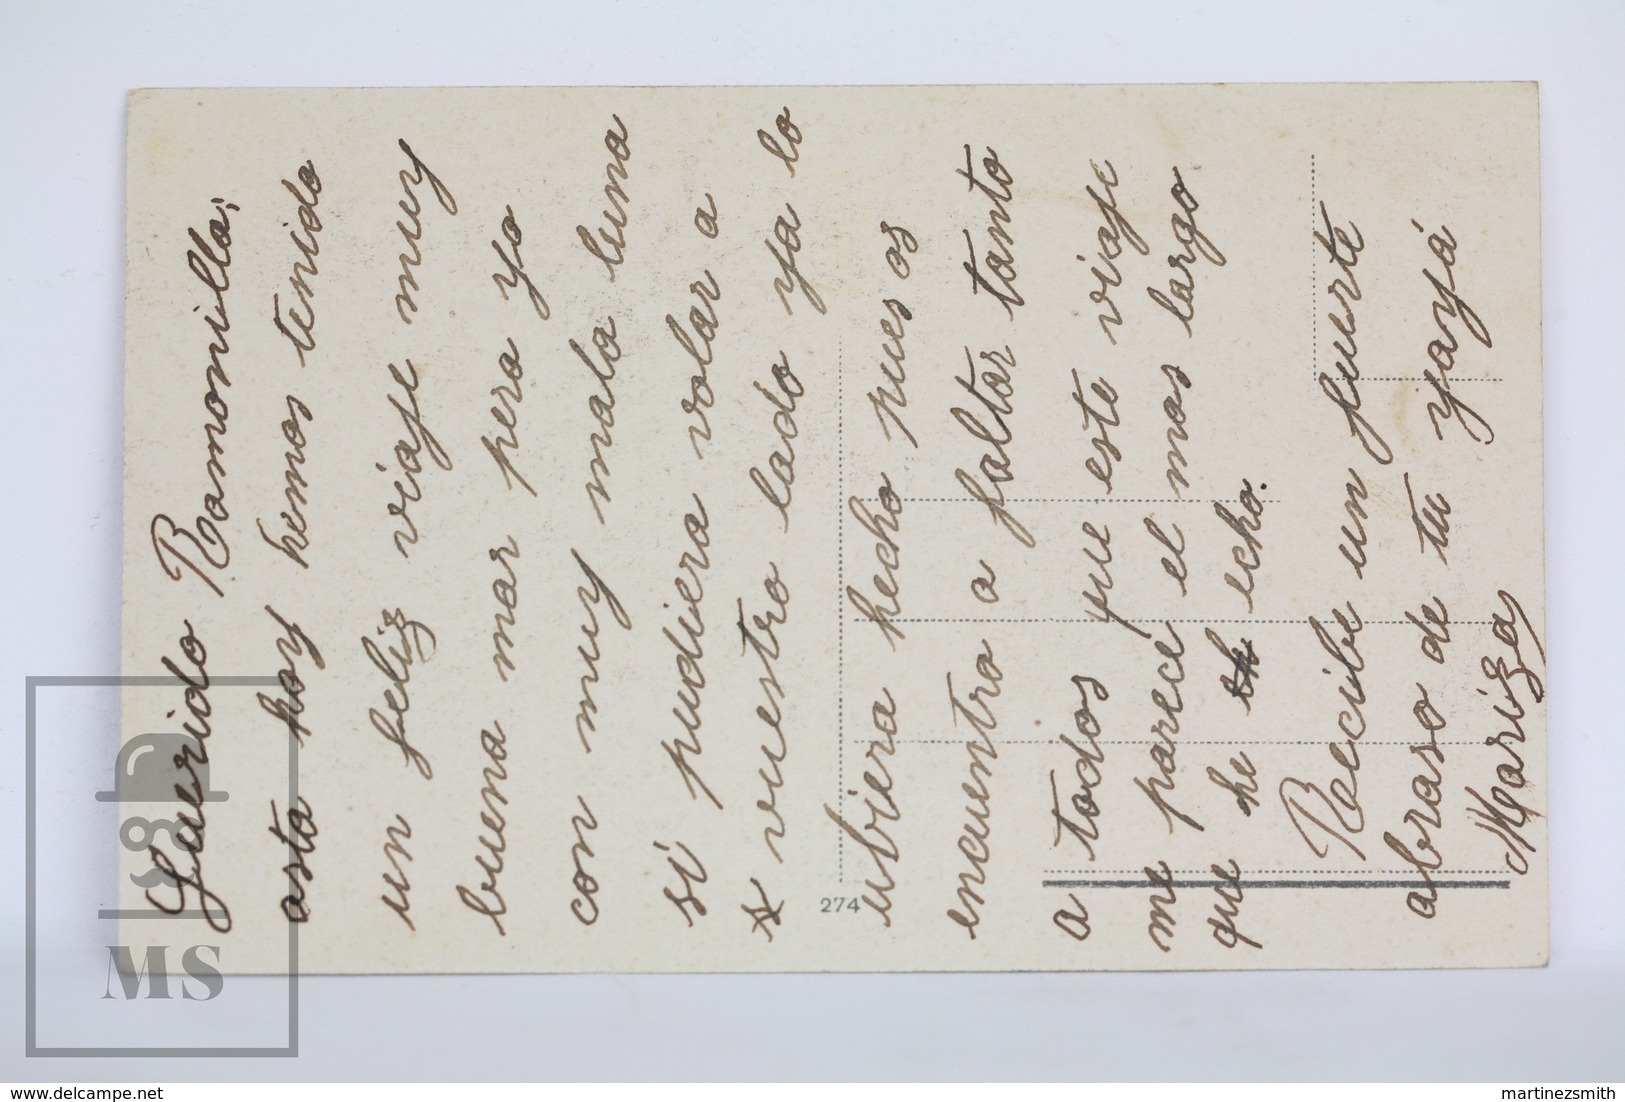 Querido Ramonilla;
asta hoy hemos tenido
un feliz viaje muy
buena mar pero yo
con muy mala luna
si pudiera volar a
vuestro lado ya lo
ubiera hecho pues os
encuentro a faltar tanto
a todos que este viaje
me parece el mas largo
que he echo.
Recibe un fuerte
abraso de tu yayá
Mariza
274
MS
delcampe.net
martinezsmith